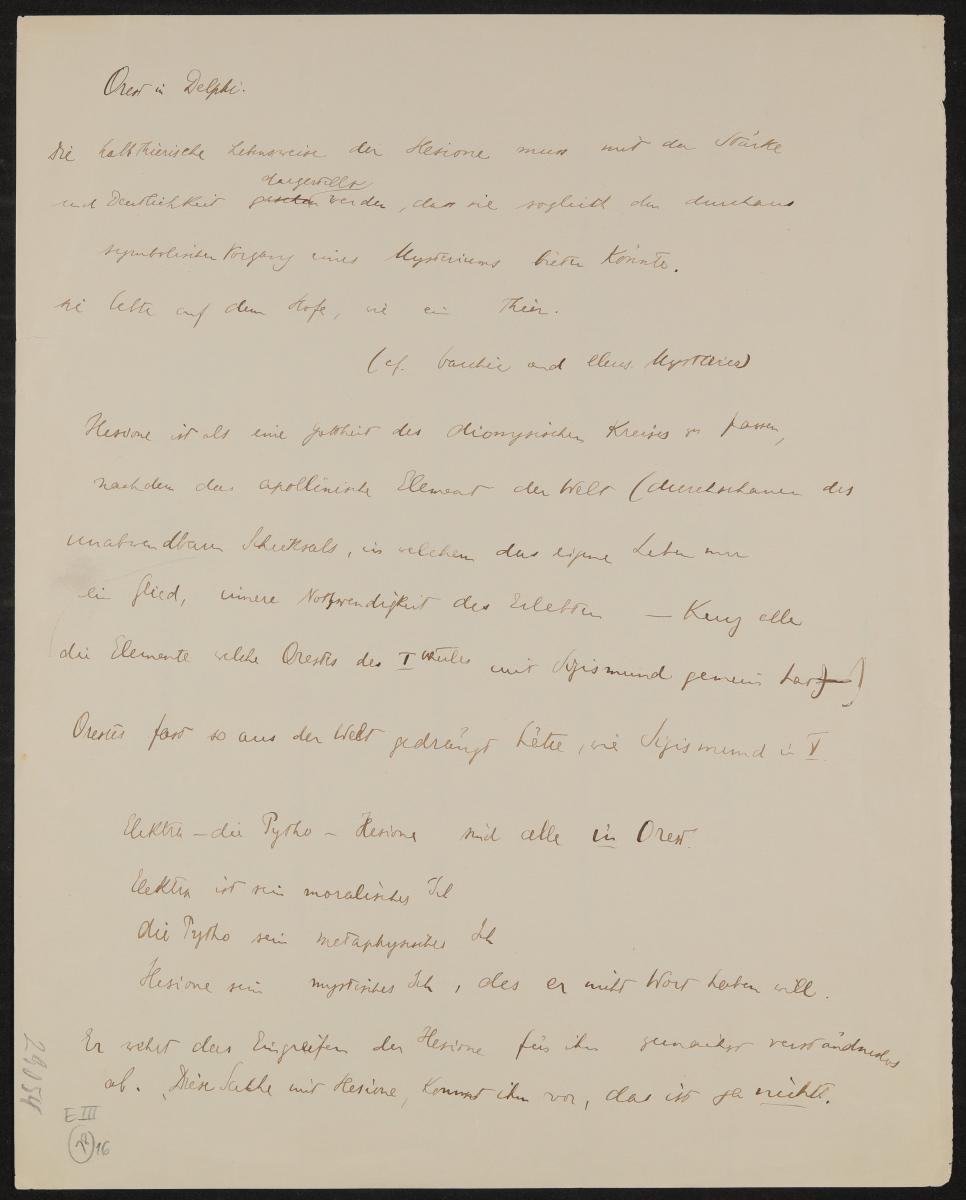 Orest in Delphi.
Die halbthierische Lebensweise der Hesione muss mit der Stärke
dargestellt
und Deutlichkeit gesehen werden, dass sie sogleich den durchaus
symbolischen Vorgang eines Mysteriums bieten könnte.
sie lebte auf dem Hofe, wie ein Thier.
(cf. und Eleus. Mysterien)
Hesione ist als eine Gottheit des dionysischen Kreises zu fassen,
nachdem das apollinische Element der Welt (durchschauen des
unabwendbaren Schicksals, in welchem das eigene Leben nur
ein Glied, innere Nothwendigkeit des Erlebten — Kurz alle
die Elemente welche Orestes des I Theiles mit Sigismund gemein hat)
Orestes fast so aus der Welt gedrängt hätte, wie Sigismund in V.
Elektra – die Pytho – Hesione sind alle in Orest.
Elektra ist sein moralisches Ich
die Pytho sein metaphysisches Ich
Hesione sein mystisches Ich, des er nicht Wort haben will.
Er wehrt das Eingreifen der Hesione für ihn zunächst verständnislos
ab. Diese Sache mit Hesione, kommt ihm vor, das ist ja nichts.
29054
E III
22 16